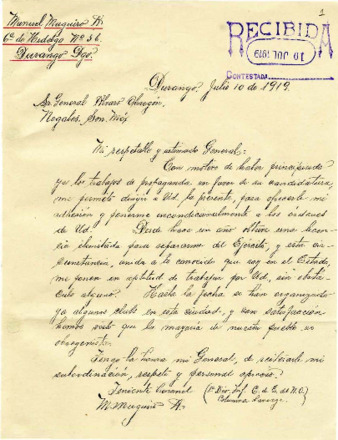 1
Manuel Muguiro R.
6a de Hidalgo No 36.
Durango Dgo.
RECIBIDA
10 JUL 1919
CONTESTADA
Durango. Julio 10 de 1919.
Sr. General Alvaro Obregón,
Nogales, Son. Méx
Mi respetable y estimado General:
Con motivo de haber principiado
ya los trabajos de propaganda, en favor de su candidatura,
me permito dirigir a Ud. la presente, para ofrecerle mi
adhesión y ponerme incondicionalmente a las órdenes
de Ud. Desde hace un año obtuve una licen-
cia ilimitada para separarme del Ejército, y esta cir-
cunstancia, unida a lo conocido que soy en el Estado,
me ponen en aptitud de trabajar por Ud. sin obstá-
culo alguno. Hasta la fecha se han organizado
ya algunos clubs en esta ciudad, y con satisfacción
hemos visto que la mayoría de nuestro pueblo, es
obregonista.
Tengo la honra mi General, de reiterarle mi
subordinación, respeto y personal aprecio.
Teniente Coronel
M. Muguiro R.